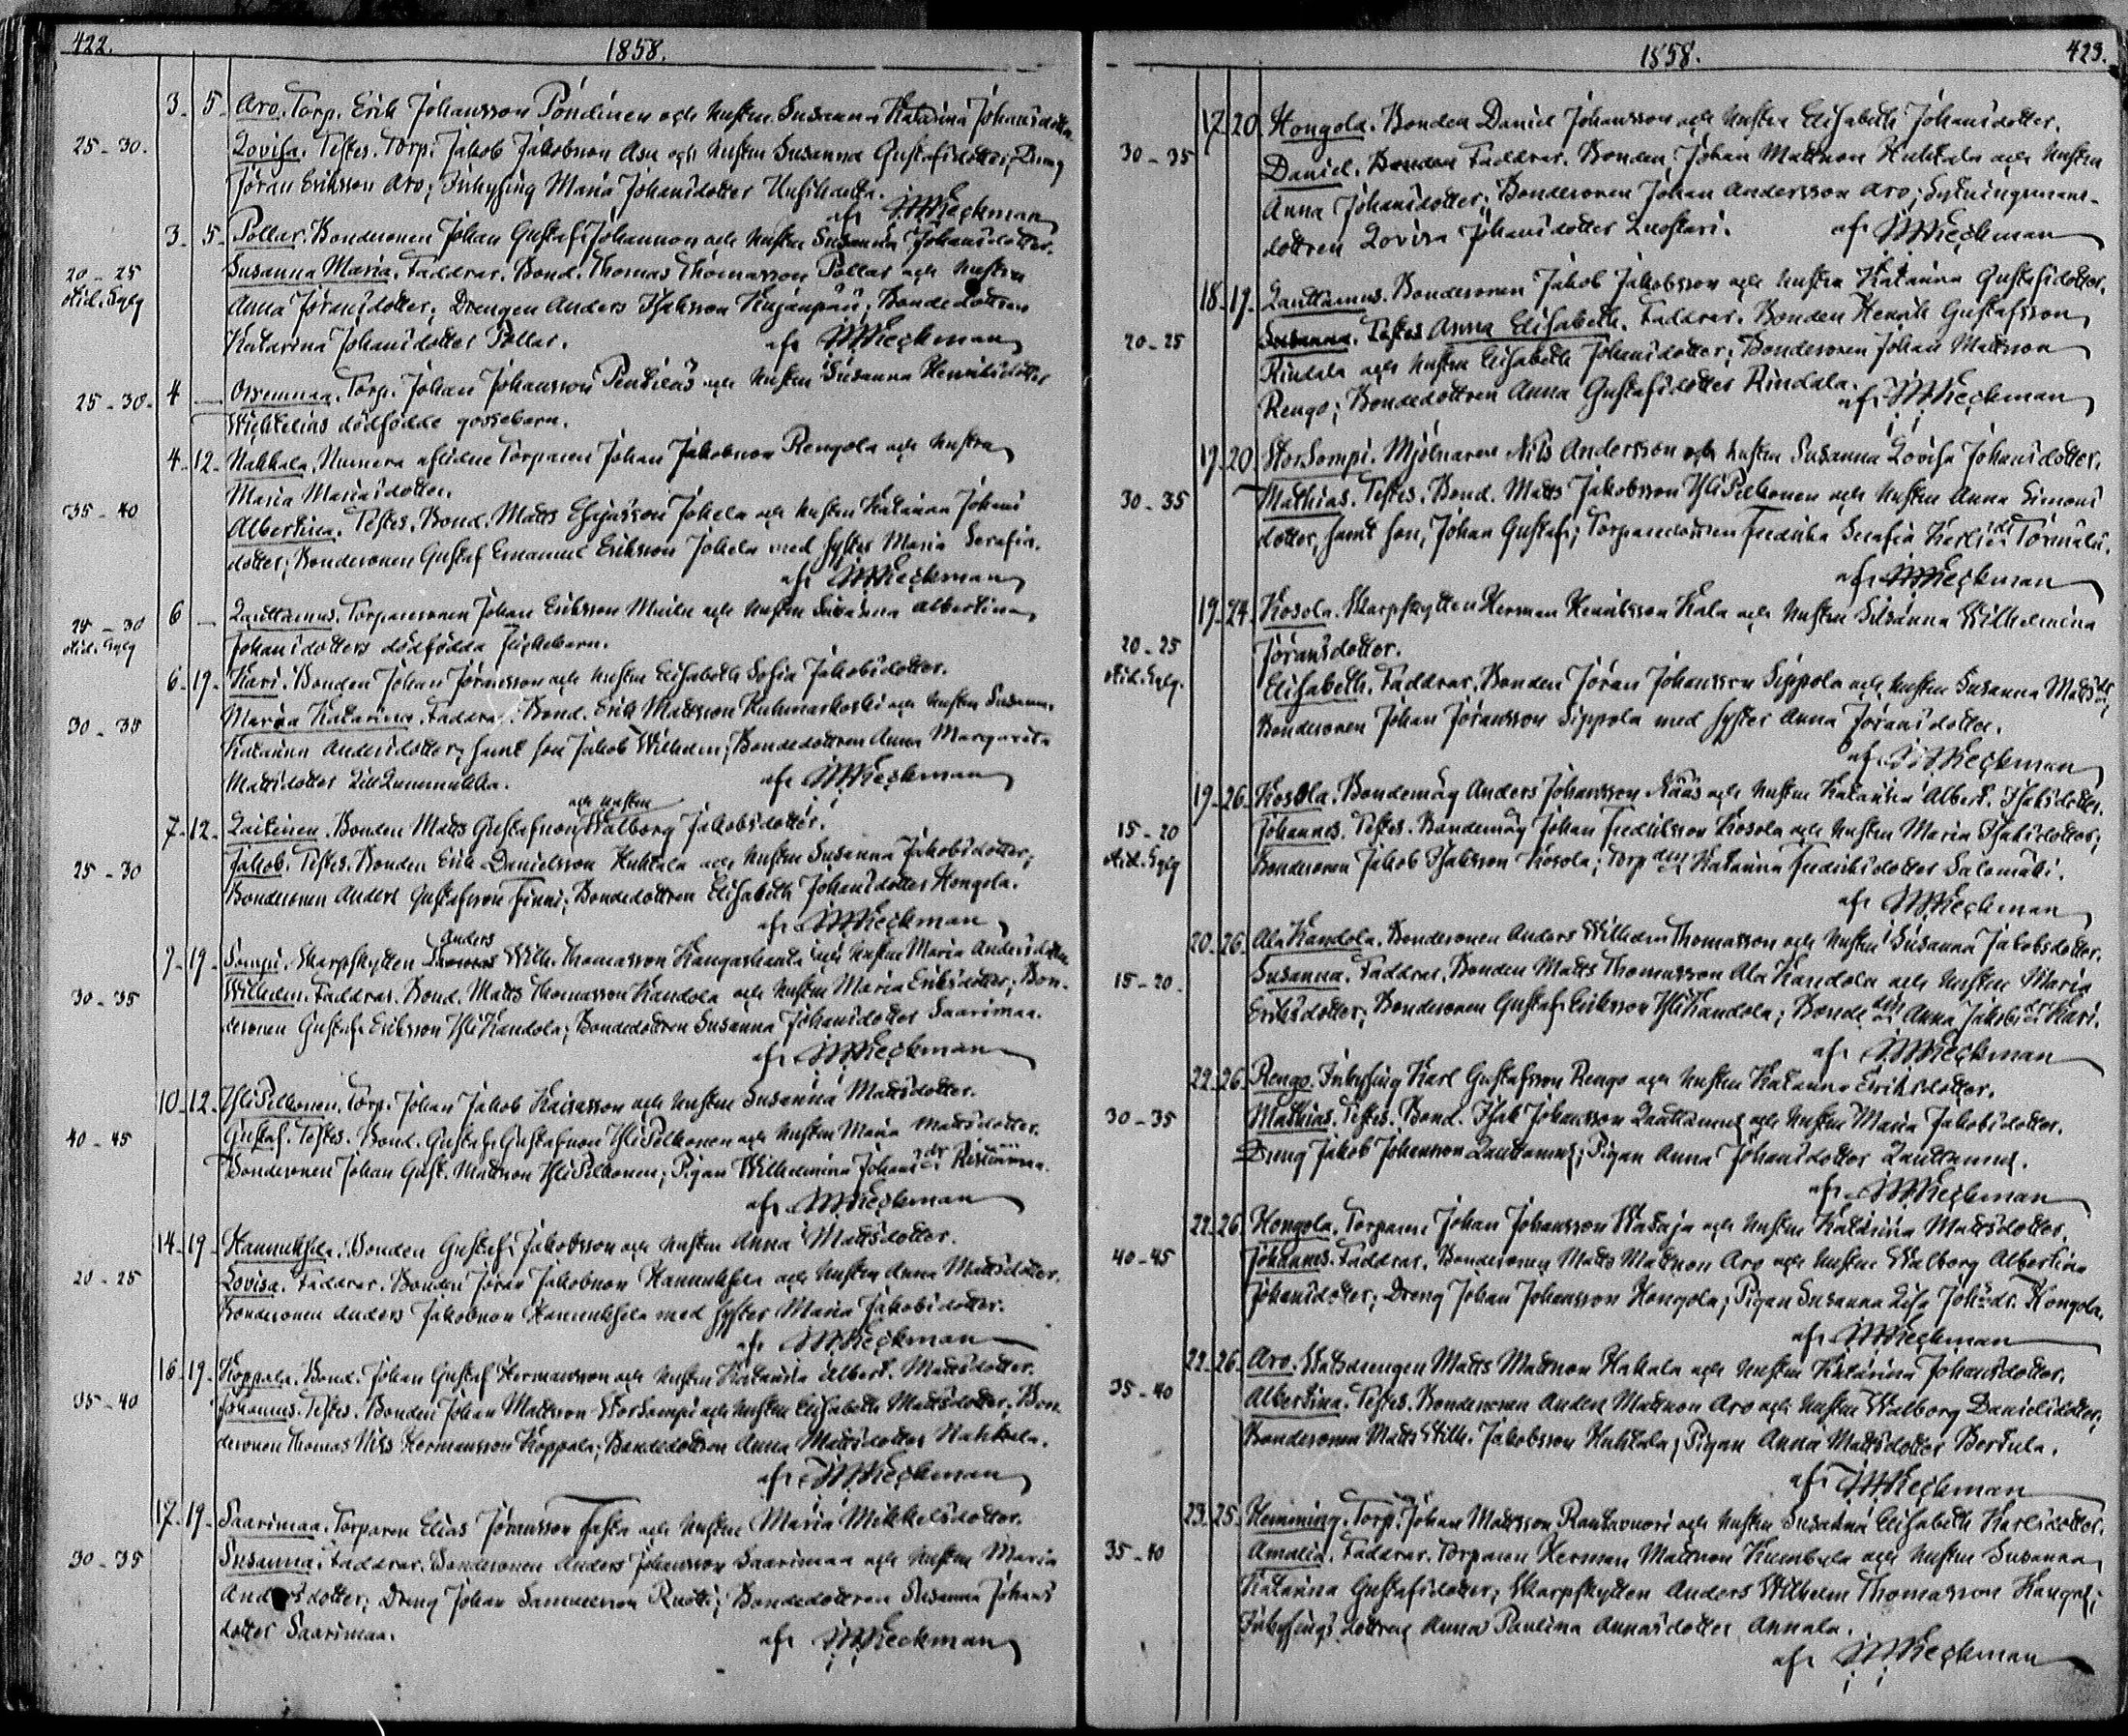 422.
1858.
3. 5. Aro. Torp. Erik Johansson Pöndinen och hustru Susanna Katarina Johansdotter
25-30. Lovisa. Testes. Torp. Jakob Jakobsson Asu och hustru Susanna Gustafsdotter; Dreng
Jöran Eriksson Aro; Inhysing Maria Johansdotter
af
3. 5. Pollar. Bondesonen Johan Gustaf Johansson och hustru Susanna Johansdotter.
20-25 Susanna Maria. Faddrar. Bond. Thomas Thomasson Pollar och hustru
Anna Jöransdotter; Drengen Anders Isaksson; Bondedottren
Katarina Johansdotter Pollar. af
25-30. 4 — Torp. Johan Johansson och hustru Susanna Henriksdotter
dödfödde gossebarn.
4. 12. Nahkala. Numera aflidne Torparen Johan Jakobsson Rengola och hustru
Maria Mariasdotter.
35-40 Albertina. Testes. Bond. Matts Johela och hustru Katarina Johans
dotter; Bondesonen Gustaf Emanuel Eriksson Johela med syster Maria Serafia.
af
25-30 6 — Lauttamus. Torparesonen Johan Eriksson och hustru Susanna Albertina
Johansdotters dödfödda flickebarn.
6. 19. Kari. Bonden Johan Jöransson och hustru Elisabeth Sofia Jakobsdotter.
30-35 Maria Katarina. Faddrar. Bond. Erik Mattsson Kuhmarkoski och hustru Susanna
Katarina Andersdotter, samt son Jakob Wilhelm; Bondedottren Anna Margareta
Mattsdotter af
och hustru
7. 12. Laitinen. Bonden Matts Gustafsson Walborg Jakobsdotter.
25-30 Jakob. Testes. Bonden Erik Danielsson Huhtala och hustru Susanna Jakobsdotter;
Bondesonen Anders Gustafsson Finni; Bondedottren Elisabeth Johansdotter Hongola.
af
Anders
9. 19. Sompi. Skarpskytten Thomas Wilh. Thomasson Kangashauta och hustru Maria Andersdotter
30-35 Wilhelm. Faddrar. Bond. Matts Thomasson Kandola och hustru Maria Eriksdotter; Bon-
desonen Gustaf Eriksson YliKandola; Bondedottren Susanna Johansdotter Saarimaa.
af
10. 12. YliPelkonen. Torp. Johan Jakob och hustru Susanna Mattsdotter.
40-45 Gustaf. Testes. Bond. Gustaf Gustafsson YliPelkonen och hustru Maria Mattsdotter.
Bondesonen Johan Gust. Mattsson YliPelkonen; Pigan Wilhelmina Johansdr
af
14. 19. Hannuksela. Bonden Gustaf Jakobsson och hustru Anna Mattsdotter.
20-25 Lovisa. Faddrar. Bonden Jöran Jakobsson Hannuksela och hustru Anna Mattsdotter.
Bondesonen Anders Jakobsson Hannuksela med syster Maria Jakobsdotter.
af
16. 19. Koppala. Bond. Johan Gustaf Hermansson och hustru Katarina Albert. Mattsdotter.
35-40 Johannes. Testes. Bonden Johan Mattsson StorSompi och hustru Elisabeth Mattsdotter; Bon-
desonen Thomas Nils Hermansson Koppala; Bondedottren Anna Mattsdotter Nahkala.
af
17. 19. Saarimaa. Torparen Elias Jöransson Fasta och hustru Maria Mikkelsdotter.
30-35 Susanna. Faddrar. Bondesonen Anders Johansson Saarimaa och hustru Maria
Andersdotter; Dreng Johan Samuelsson; Bondedottren Susanna Johans
dotter Saarimaa. af
1858. 423.
17. 20. Hongola. Bonden Daniel Johansson och hustru Elisabeth Johansdotter.
30-35 Daniel. Bonden Faddrar. Bonden Johan Mattsson Huhtala och hustru
Anna Johansdotter; Bondesonen Johan Andersson Aro; Sytningsmans-
dottren Lovisa Johansdotter Luostari. af
18. 19. Lauttamus. Bondesonen Jakob Jakobsson och hustru Katarina Gustafsdotter.
20-25 Susanna. Testes Anna Elisabeth. Faddrar. Bonden Henrik Gustafsson
Rindala och hustru Elisabeth Johansdotter; Bondesonen Johan Mattsson
Rengo; Bondedottren Anna Gustafsdotter Rindala. af
19. 20. StorSompi. Mjölnaren Nils Andersson och hustru Susanna Lovisa Johansdotter.
30-35 Mathias. Testes. Bond. Matts Jakobsson YliPelkonen och hustru Anna Simons
dotter, samt son, Johan Gustaf; Torparedottren Fredrika Serafia Karlsdr Törmälä.
af
19. 24. Kosola. Skarpskytten Herman Henriksson Kala och hustru Susanna Wilhelmina
20-25 Jöransdotter.
Elisabeth. Faddrar. Bonden Jöran Johansson Sippola och hustru Susanna Mattsdr;
Bondesonen Johan Jöransson Sippola med syster Anna Jöransdotter.
af
19. 26. Kosola. Bondemåg Anders Johansson Näås och hustru Katarina Albert. Isaksdotter.
15-20 Johannes. Testes. Bondemåg Johan Fredriksson Kosola och hustru Maria Isaksdotter;
Bondesonen Jakob Isaksson Kosola; Katarina Fredriksdotter Salomäki.
af
20. 26. AlaKandola. Bondesonen Anders Wilhelm Thomasson och hustru Susanna Jakobsdotter.
15-20. Susanna. Faddrar. Bonden Matts Thomasson Ala Kandola och hustru Maria
Eriksdotter; Bondesonen Gustaf Eriksson YliKandola; Anna Jakobsdr Kari.
af
22. 26. Rengo. Inhysing Karl Gustafsson Rengo och hustru Katarina Eriksdotter.
30-35 Mathias. Testes. Bond. Isak Johansson Lauttamus och hustru Maria Jakobsdotter.
Dreng Jakob Johansson Lauttamus; Pigan Anna Johansdotter Lauttamus.
af
22. 26. Hongola. Torparen Johan Johansson Kataja och hustru Katarina Mattsdotter.
40-45 Johannes. Faddrar. Bondesonen Matts Mattsson Aro och hustru Walborg Albertina
Johansdotter; Dreng Johan Johansson Hongola; Pigan Susanna Lisa Johsdr. Hongola.
af
22. 26. Aro. Matts Mattsson Hakala och hustru Katarina Johansdotter.
35-40 Albertina. Testes. Bondesonen Anders Mattsson Aro och hustru Walborg Danielsdotter;
Bondesonen Matts Wilh. Jakobsson Huhtala; Pigan Anna Mattsdotter Bertula.
af
23. 25. Hemming. Torp. Johan Mattsson Rantavuori och hustru Susanna Elisabeth Karlsdotter.
35-40 Amalia. Faddrar. Torparen Herman Mattsson och hustru Susanna
Katarina Gustafsdotter; Skarpskytten Anders Wilhelm Thomasson
Inhysings dottren Anna Paulina Annasdotter Annala.
af